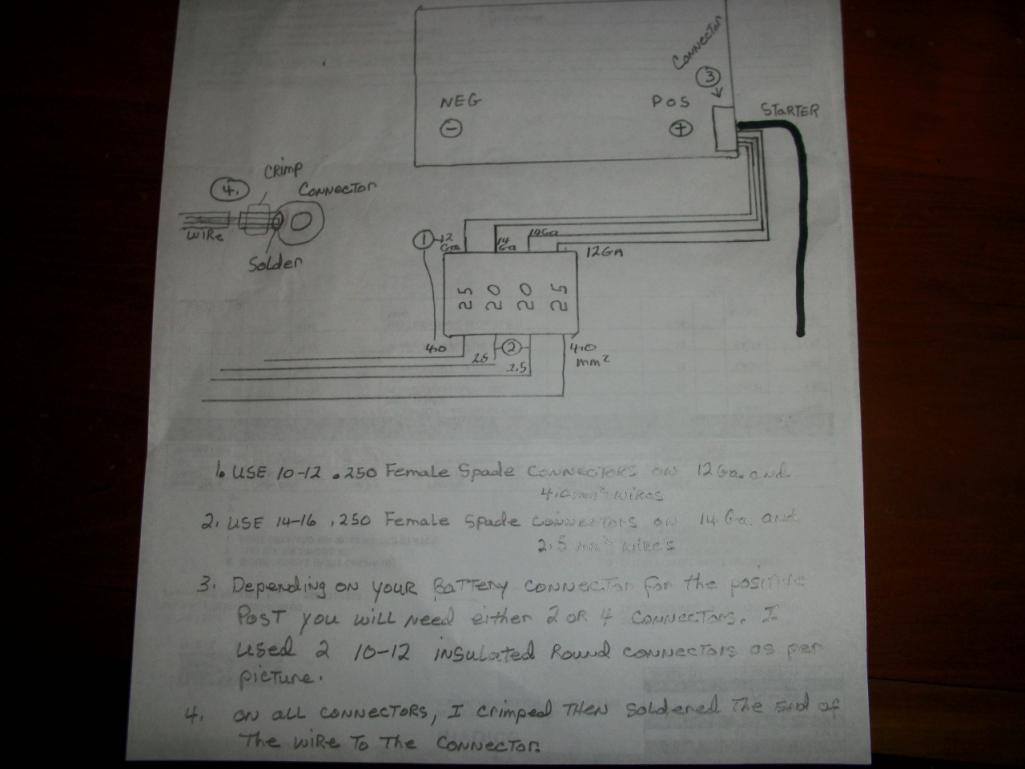 Connector
3
NEG
POS
STARTER
-
+
CRIMP
4.
CONNECTOR
WIRE
Solder
1
12 Ga
14 Ga
14Ga
12GA
25 20 20 25
4.0
25
2
2.5
4.0 mm²
1. USE 10-12 .250 Female Spade CONNECTORS ON 12Ga. and
4.0 mm² wires
2. USE 14-16 .250 Female Spade CONNECTORS ON 14 Ga. and
2.5 mm² wire's
3. Depending on your Battery connector for the positive
Post you will need either 2 or 4 connectors. I
used 2 10-12 insulated Round connectors as per
picture.
4. on all connectors, I crimped then soldered the end of
the wire to the connector.